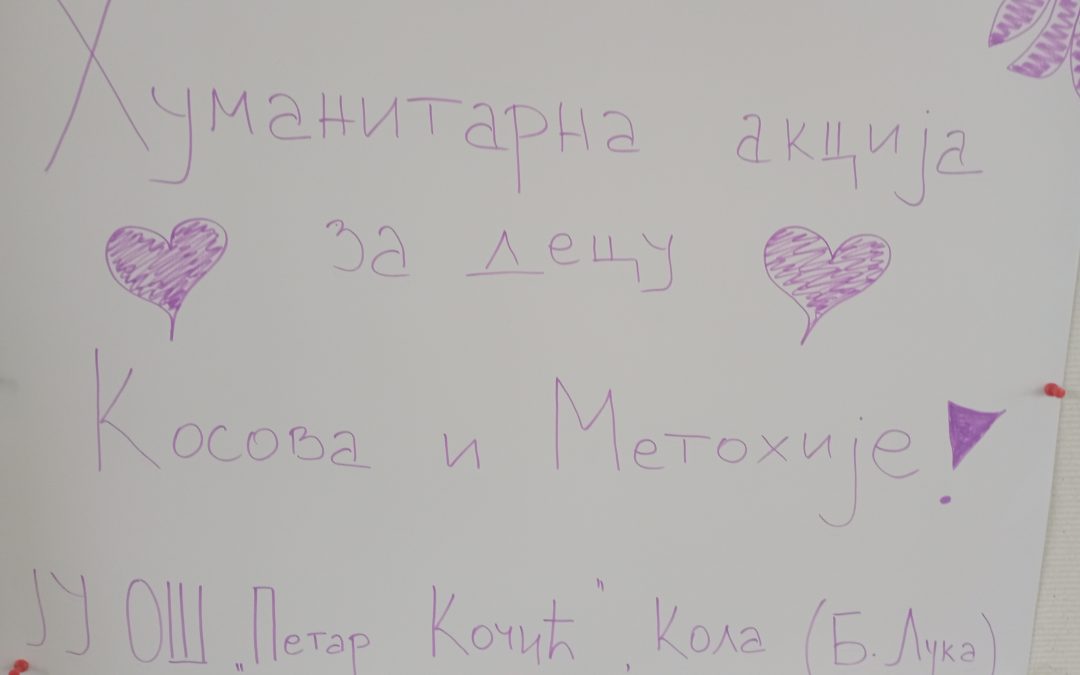 Хуманитарна акција
за децу
Косова и Метохије!
ЈУ ОШ „Петар Кочић", Кола (Б. Лука)